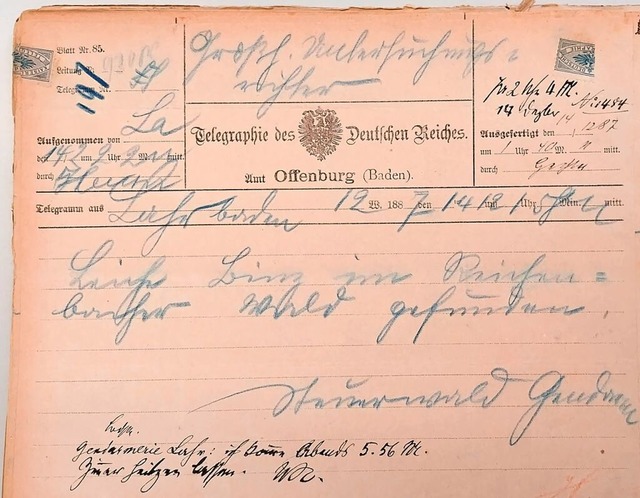 Blatt Nr. 85.
Leitung Nr.
Telegramm Nr.
191
Grossh. Untersuchungs=
richter
Aufgenommen von La
den 14/12 um 2 Uhr Min. mitt.
durch
Telegraphie des Deutschen Reiches.
Amt Offenburg (Baden).
pr. 2 Uhr 4 M.
14 Dezbr No: 1484
Ausgefertigt den 14/12 87
um 1 Uhr 40 M. mitt.
durch
Telegramm aus Lahr baden 12 W. 188 7 den 14/12 um 1 Uhr Min. mitt.
Leiche Binz im Reichen=
bacher Wald gefunden.
Steuerwald Gendarm
Gendarmerie Lahr: ich komme Abends 5.56 M.
Zimmer heitzen lassen.